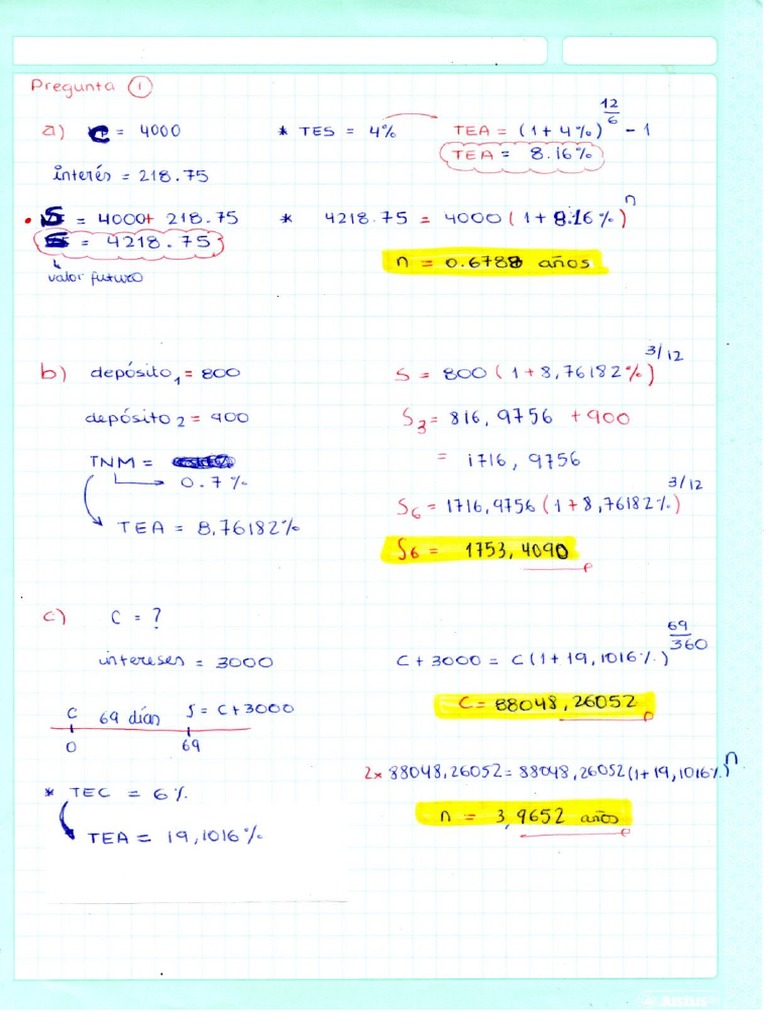 Pregunta 1
a) C = 4000 * TES = 4% TEA = (1 + 4%)^12/6 - 1
TEA = 8.16%
interés = 218.75
• S = 4000 + 218.75 * 4218.75 = 4000 (1 + 8.16%)^n
S = 4218.75
n = 0.6788 años
valor futuro
b) depósito₁ = 800 S = 800 (1 + 8,76182%)^3/12
depósito₂ = 900 S₃ = 816,9756 + 900
TNM = = 1716,9756
0.7%
TEA = 8,76182% S₆ = 1716,9756 (1 + 8,76182%)^3/12
S₆ = 1753,4090
c) C = ?
intereses = 3000 C + 3000 = C (1 + 19,1016%)^69/360
C 69 días S = C + 3000 C = 88048,26052
0 69
* TEC = 6% 2 x 88048,26052 = 88048,26052 (1 + 19,1016%)^n
TEA = 19,1016% n = 3,9652 años
JUSTUS